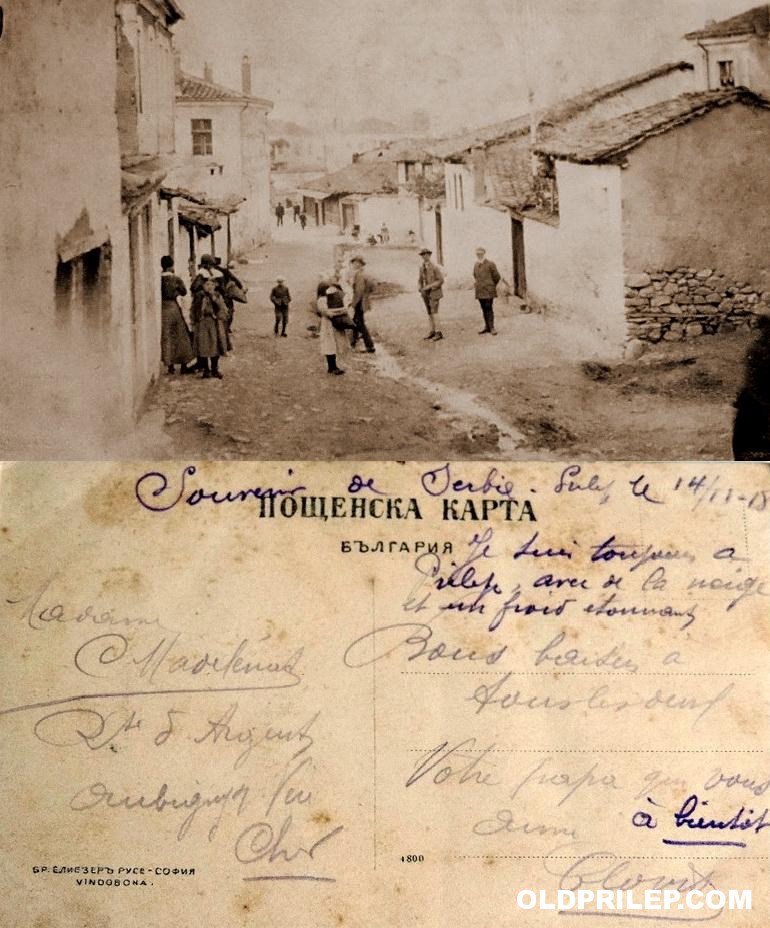 Souvenir de Serbie.
ПОЩЕНСКА КАРТА
БЪЛГАРИЯ
Je suis toujours a
Prilep, avec de la neige
et un froid etonnant
Bons baisers à
tous les deux
Votre papa qui vous
aime à bientôt
Clovis
Madame
C Madelénat
Rte d'Argent
Aubigny
Cher
БР. ЕЛИЕЗЕРЪ РУСЕ-СОФИЯ
VINDOBONA.
4800
OLDPRILEP.COM